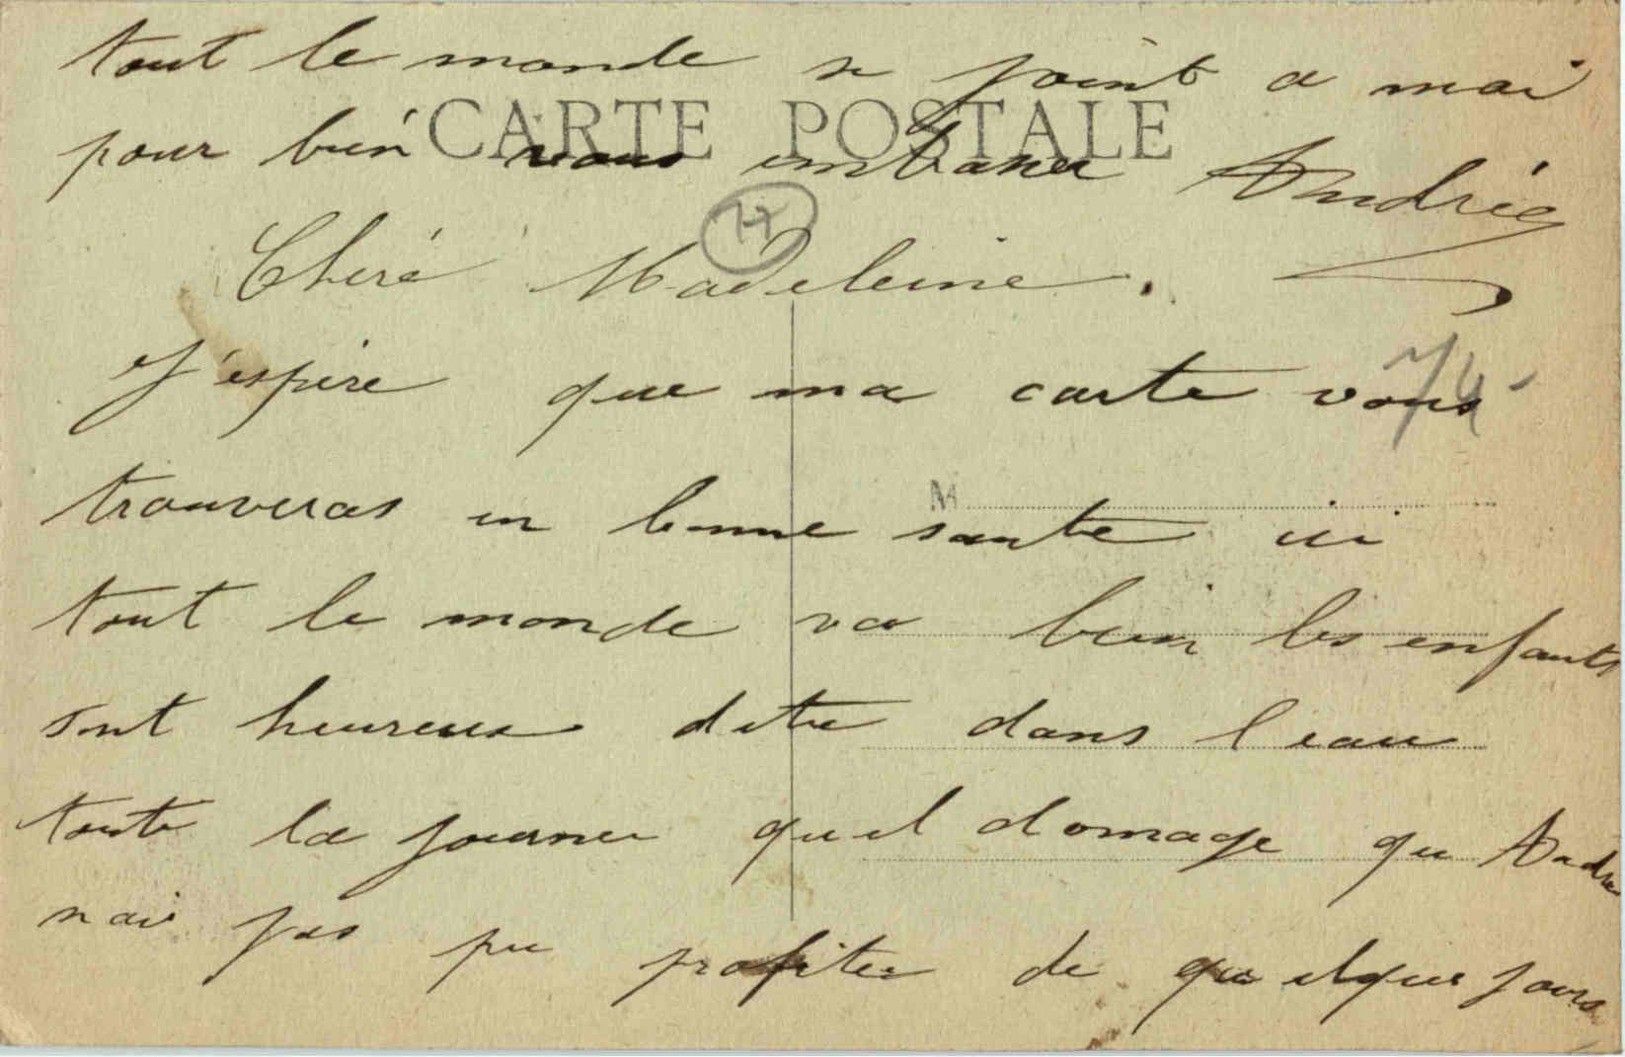 tout le monde se joint a moi
CARTE POSTALE
pour bien vous embrasser Andrée
H
Cheré Madeleine.
J'espère que ma carte vous
74
trouveras en bonne sante ici
M
tout le monde va bien les enfants
sont heureux detre dans l eau
toute la journee quel domage que Andre
nai pas pu profiter de quelques jours